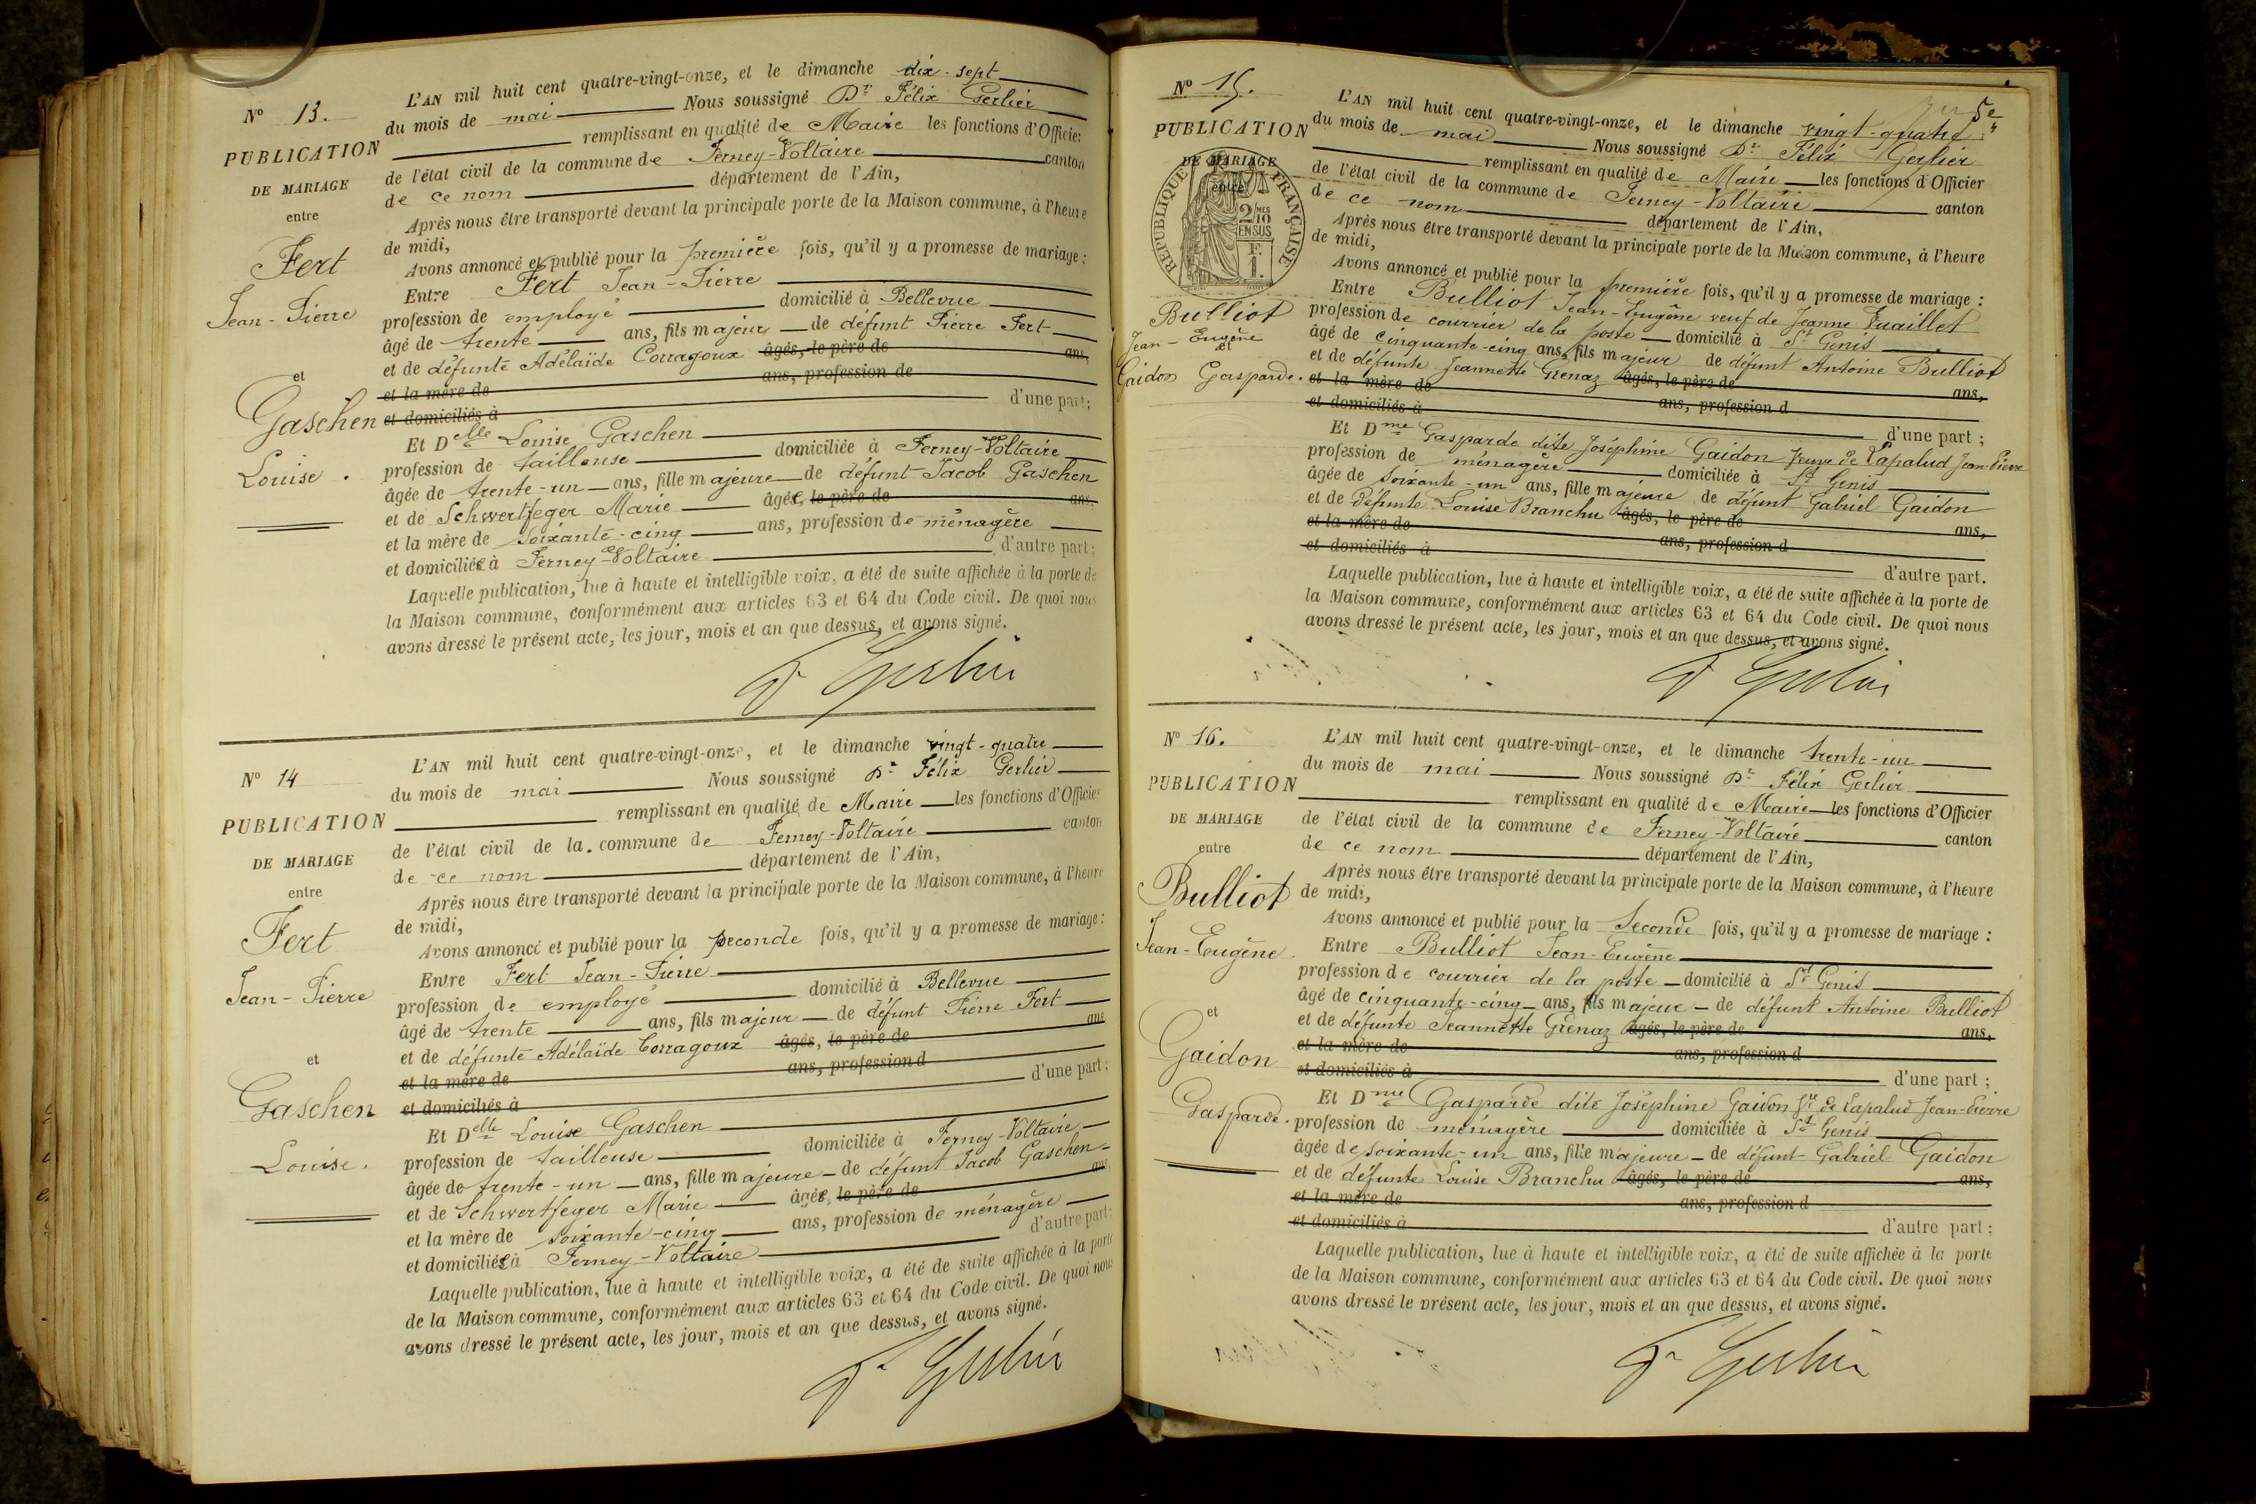 N° 13.
PUBLICATION
DE MARIAGE
entre
Fert
Jean-Pierre
et
Gaschen
Louise.
L'AN mil huit cent quatre-vingt-onze, et le dimanche dix-sept
du mois de mai Nous soussigné Dr Félix Gerlier
remplissant en qualité de Maire les fonctions d'Officier
de l'état civil de la commune de Ferney-Voltaire canton
de ce nom département de l'Ain,
Après nous être transporté devant la principale porte de la Maison commune, à l'heure
de midi,
Avons annoncé et publié pour la première fois, qu'il y a promesse de mariage :
Entre Fert Jean-Pierre
profession de employé domicilié à Bellevue
âgé de trente ans, fils majeur de défunt Pierre Fert
et de défunte Adélaïde Corragoux âgés, le père de ans,
et la mère de ans, profession de
et domiciliés à d'une part ;
Et Delle Louise Gaschen
profession de tailleuse domiciliée à Ferney-Voltaire
âgée de trente-un ans, fille majeure de défunt Jacob Gaschen
et de Schwertfeger Marie âgée, le père de ans,
et la mère de soixante-cinq ans, profession de ménagère
et domiciliée à Ferney-Voltaire d'autre part ;
Laquelle publication, lue à haute et intelligible voix, a été de suite affichée à la porte de
la Maison commune, conformément aux articles 63 et 64 du Code civil. De quoi nous
avons dressé le présent acte, les jour, mois et an que dessus, et avons signé.
Dr Gerlier
N° 14
PUBLICATION
DE MARIAGE
entre
Fert
Jean-Pierre
et
Gaschen
Louise.
L'AN mil huit cent quatre-vingt-onze, et le dimanche vingt-quatre
du mois de mai Nous soussigné Dr Félix Gerlier
remplissant en qualité de Maire les fonctions d'Officier
de l'état civil de la commune de Ferney-Voltaire canton
de ce nom département de l'Ain,
Après nous être transporté devant la principale porte de la Maison commune, à l'heure
de midi,
Avons annoncé et publié pour la seconde fois, qu'il y a promesse de mariage :
Entre Fert Jean-Pierre
profession de employé domicilié à Bellevue
âgé de trente ans, fils majeur de défunt Pierre Fert
et de défunte Adélaïde Corragoux âgés, le père de ans
et la mère de ans, profession d
et domiciliés à d'une part ;
Et Delle Louise Gaschen
profession de tailleuse domiciliée à Ferney-Voltaire
âgée de trente-un ans, fille majeure de défunt Jacob Gaschen
et de Schwertfeger Marie âgée, le père de ans,
et la mère de soixante-cinq ans, profession de ménagère
et domiciliée à Ferney-Voltaire d'autre part ;
Laquelle publication, lue à haute et intelligible voix, a été de suite affichée à la porte
de la Maison commune, conformément aux articles 63 et 64 du Code civil. De quoi nous
avons dressé le présent acte, les jour, mois et an que dessus, et avons signé.
Dr Gerlier
5e
N° 15.
PUBLICATION
DE MARIAGE
entre
RÉPUBLIQUE FRANÇAISE
2/10
EN SUS
F.
1.
Bulliot
Jean-Eugène
et
Gaidon Gasparde.
L'AN mil huit cent quatre-vingt-onze, et le dimanche vingt-quatre
du mois de mai Nous soussigné Dr Félix Gerlier
remplissant en qualité de Maire les fonctions d'Officier
de l'état civil de la commune de Ferney-Voltaire canton
de ce nom département de l'Ain,
Après nous être transporté devant la principale porte de la Maison commune, à l'heure
de midi,
Avons annoncé et publié pour la première fois, qu'il y a promesse de mariage :
Entre Bulliot Jean-Eugène veuf de Jeanne Vuaillet
profession de courrier de la poste domicilié à St Genis
âgé de cinquante-cinq ans, fils majeur de défunt Antoine Bulliot
et de défunte Jeannette Grenaz âgés, le père de ans,
et la mère de ans, profession d
et domiciliés à d'une part ;
Et Dme Gasparde dite Joséphine Gaidon veuve de Lapalud Jean-Pierre
profession de ménagère domiciliée à St Genis
âgée de soixante-un ans, fille majeure de défunt Gabriel Gaidon
et de défunte Louise Branchu âgés, le père de ans,
et la mère de ans, profession d
et domiciliés à d'autre part.
Laquelle publication, lue à haute et intelligible voix, a été de suite affichée à la porte de
la Maison commune, conformément aux articles 63 et 64 du Code civil. De quoi nous
avons dressé le présent acte, les jour, mois et an que dessus, et avons signé.
Dr Gerlier
N° 16.
PUBLICATION
DE MARIAGE
entre
Bulliot
Jean-Eugène.
et
Gaidon
Gasparde.
L'AN mil huit cent quatre-vingt-onze, et le dimanche trente-un
du mois de mai Nous soussigné Dr Félix Gerlier
remplissant en qualité de Maire les fonctions d'Officier
de l'état civil de la commune de Ferney-Voltaire canton
de ce nom département de l'Ain,
Après nous être transporté devant la principale porte de la Maison commune, à l'heure
de midi,
Avons annoncé et publié pour la seconde fois, qu'il y a promesse de mariage :
Entre Bulliot Jean-Eugène
profession de courrier de la poste domicilié à St Genis
âgé de cinquante-cinq ans, fils majeur de défunt Antoine Bulliot
et de défunte Jeannette Grenaz âgés, le père de ans,
et la mère de ans, profession d
et domiciliés à d'une part ;
Et Dme Gasparde dite Joséphine Gaidon Vve de Lapalud Jean-Pierre
profession de ménagère domiciliée à St Genis
âgée de soixante-un ans, fille majeure de défunt Gabriel Gaidon
et de défunte Louise Branchu âgés, le père de ans,
et la mère de ans, profession d
et domiciliés à d'autre part ;
Laquelle publication, lue à haute et intelligible voix, a été de suite affichée à la porte
de la Maison commune, conformément aux articles 63 et 64 du Code civil. De quoi nous
avons dressé le présent acte, les jour, mois et an que dessus, et avons signé.
Dr Gerlier